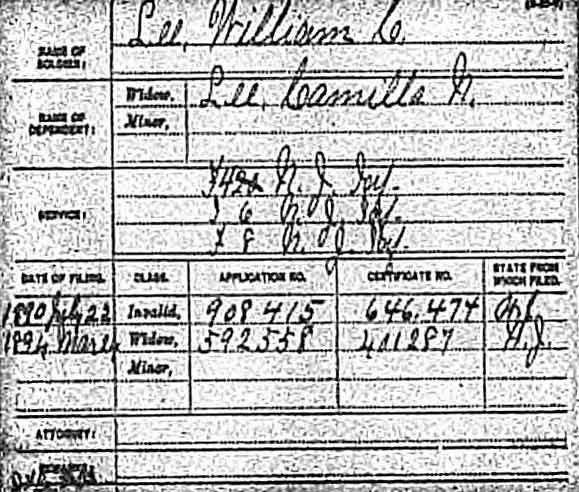 NAME OF SOLDIER: Lee, William C.
NAME OF DEPENDENT: Widow, Lee, Camilla N.
Minor,
SERVICE: N. J. Inf.
I 6 N. J. Inf.
I 8 N. J. Inf.
DATE OF FILING. CLASS. APPLICATION NO. CERTIFICATE NO. STATE FROM WHICH FILED.
1890 July 22 Invalid, 908415 646.474 N.J.
Widow, 592558 401287 N.J.
Minor,
ATTORNEY: